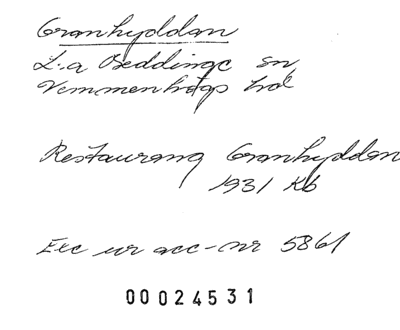 Granhyddan
L:a Beddinge sn
Vemmenhögs hd
Restaurang Granhyddan
1931 Kb
Exc ur acc-nr 5861
00024531